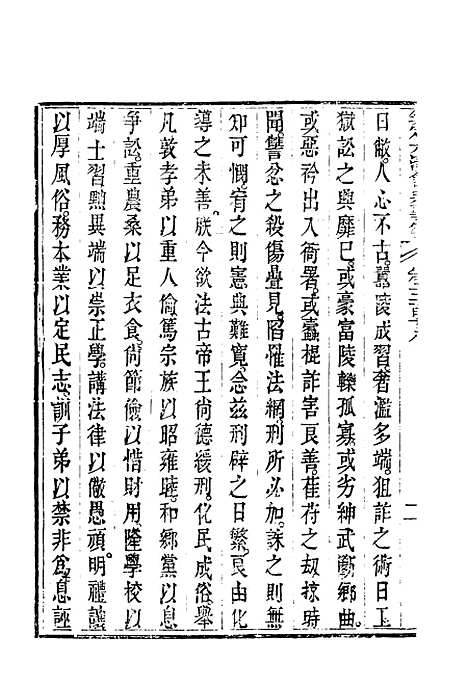 日敝人心不古嚚陵成習奢濫多端狙詐之術日工
獄訟之興靡已或豪富陵轢孤寡或劣紳武斷鄉曲
或惡衿出入衙署或蠹棍詐害良善萑苻之刼掠時
聞讐忿之殺傷疊見陷罹法網刑所必加誅之則無
知可憫宥之則憲典難寬念兹刑辟之日繁良由化
導之未善朕今欲法古帝王尚德緩刑化民成俗舉
凡敦孝弟以重人倫篤宗族以昭雍睦和鄉黨以息
爭訟重農桑以足衣食尚節儉以惜財用隆學校以
端士習黜異端以崇正學講法律以儆愚頑明禮讓
以厚風俗務本業以定民志訓子弟以禁非爲息誣